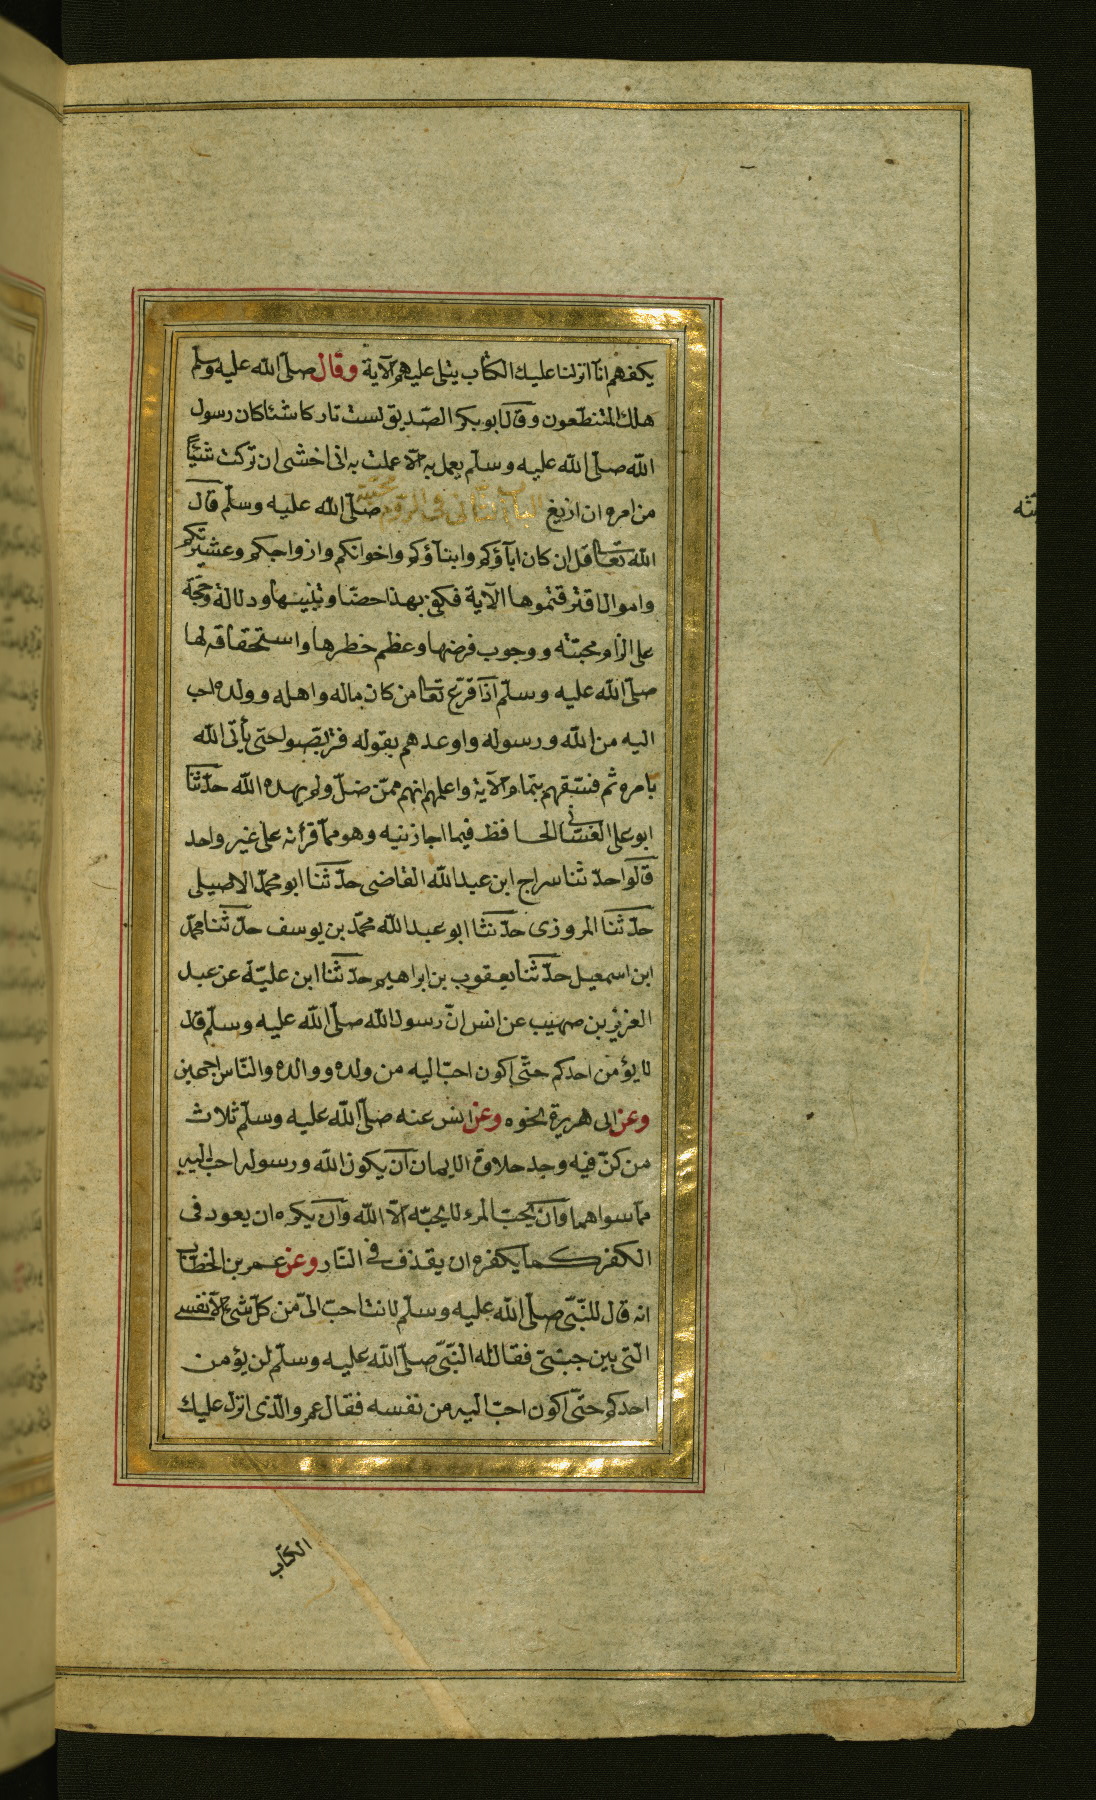 يكفهم انآ انزلنا عليك الكتاب يتلى عليهم الآية وقال صلّى الله عليه وسلّم
هلك المتنطّعون وقال ابو بكر الصّديق لست تاركا شئا كان رسول
الله صلّى الله عليه وسلّم يعمل به الا عملت به انى اخشى ان تركت شيئًا
من امره ان ازيغ الباب الثانى فى لزوم محبّته صلّى الله عليه وسلّم قال
الله تعالى قل ان كان ابآؤكم وابنآؤكم واخوانكم وازواجكم وعشيرتكم
واموال اقترفتموها الآية فكفى بهذا حضّا وتنبيها ودلالة وحجّة
على الزاوم محبّته ووجوب فرضها وعظم خطرها واستحقاقه لها
صلّى الله عليه وسلّم اذا قرّع تعالى من كان ماله واهله وولده احب
اليه من الله ورسوله واوعدهم بقوله فتربّصوا حتى يأتى الله
بامره ثم فسّقهم بتمام الآية واعلمهم انهم ممّن ضلّ ولم يهده الله حدّثنا
ابو على الغسّانى الحافظ فيما اجازنيه وهو ممّا قرأته على غير واحد
قالوا حدّثنا سراج ابن عبد الله القاضى حدّثنا ابو محمّد الاصيلى
حدّثنا المروزى حدّثنا ابو عبد الله محمّد بن يوسف حدّثنا محمّد
ابن اسمعيل حدّثنا يعقوب بن ابراهيم حدّثنا ابن عليّة عن عبد
العزيز بن صهيب عن انس انّ رسول الله صلّى الله عليه وسلّم قال
لا يؤمن احدكم حتّى اكون احبّ اليه من ولده ووالده والنّاس اجمعين
وعن ابى هريرة نحوه وعن انس عنه صلّى الله عليه وسلّم ثلاث
من كنّ فيه وجد حلاوة الايمان ان يكون الله ورسوله احبّ اليه
ممّا سواهما وان يحبّ المرء لا يحبّه الّا الله وان يكره ان يعود فى
الكفر كما يكفره ان يقذف فى النّار وعن عمر بن الخطاب
انه قال للنّبّى صلّى الله عليه وسلّم لانت احبّ الىّ من كلّ شئ الا نفسى
الّتى بين جنبىّ فقال له النّبىّ صلّى الله عليه وسلّم لن يؤمن
احدكم حتّى اكون احبّ اليه من نفسه فقال عمر والّذى انزل عليك
الكتاب